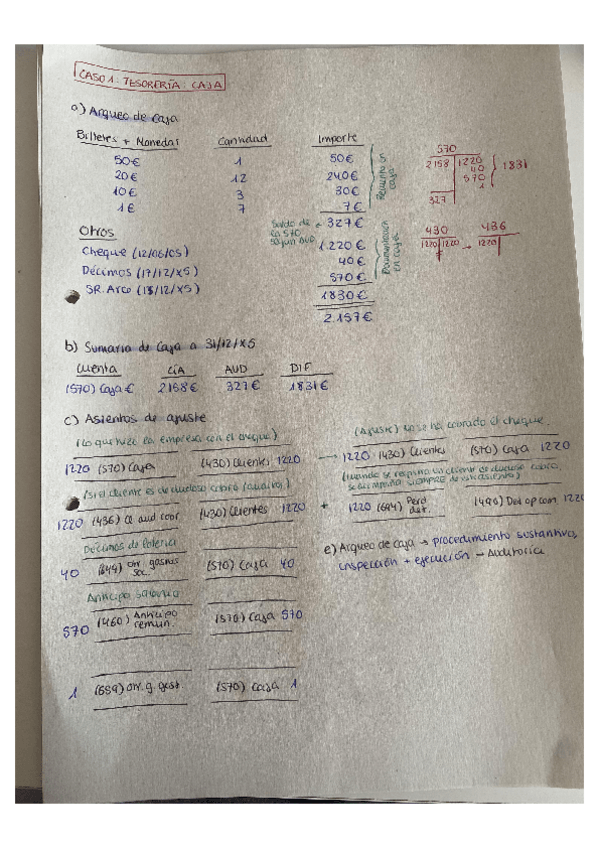 CASO 1: TESORERÍA: CAJA
a) Arqueo de caja
Billetes + Monedas Cantidad Importe
50€ 1 50€
20€ 12 240€
10€ 3 30€
1€ 7 7€
Recuento $ caja
Saldo de la 570 según aud → 327€
Otros
Cheque (12/06/05) 1.220€
Décimos (17/12/x5) 40€
SR. Arco (18/12/x5) 570€
Documentación en caja
1830€
2.157€
570
2158 1220 1831
40
570
1
327
430 436
1220 1220 → 1220
b) Sumaria de caja a 31/12/x5
Cuenta CIA AUD DIF
(570) Caja € 2158€ 327€ 1831€
c) Asientos de ajuste
(Lo que hizo la empresa con el cheque)
1220 (570) Caja (430) Clientes 1220
(Si el cliente es de dudoso cobro
1220 (436) (430) Clientes 1220
Décimos de lotería
40 (649) otr. gastos soc. (570) Caja 40
Anticipo salario
570 (460) Anticipo remun. (570) Caja 570
1 (659) otr. g. gest. (570) Caja 1
(Ajuste) no se ha cobrado el cheque.
→ 1220 (430) Clientes (570) Caja 1220
(cuando se registra un cliente de dudoso cobro, se acompaña siempre de
+ 1220 (694) Perd det. (490) Det op com. 1220
e) Arqueo de caja → procedimiento sustantivo,
inspección + ejecución → Auditoría